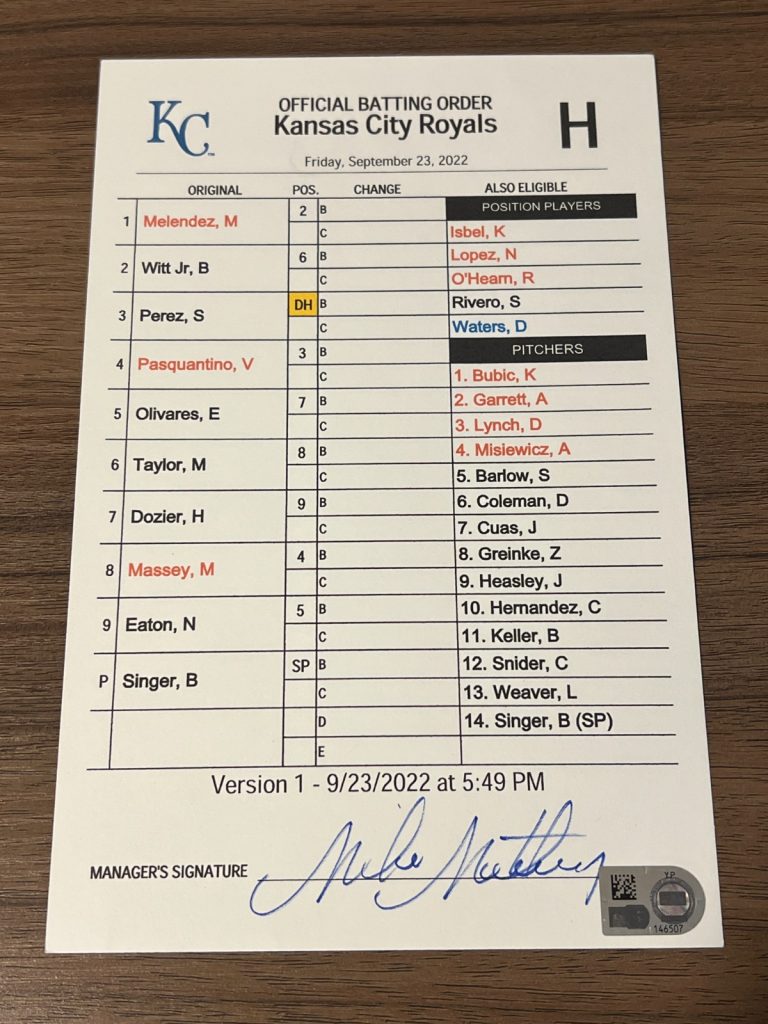 KC
OFFICIAL BATTING ORDER
Kansas City Royals
H
Friday, September 23, 2022
ORIGINAL POS. CHANGE ALSO ELIGIBLE
1 Melendez, M 2 B POSITION PLAYERS
C Isbel, K
2 Witt Jr, B 6 B Lopez, N
C O'Hearn, R
3 Perez, S DH B Rivero, S
C Waters, D
4 Pasquantino, V 3 B PITCHERS
C 1. Bubic, K
5 Olivares, E 7 B 2. Garrett, A
C 3. Lynch, D
6 Taylor, M 8 B 4. Misiewicz, A
C 5. Barlow, S
7 Dozier, H 9 B 6. Coleman, D
C 7. Cuas, J
8 Massey, M 4 B 8. Greinke, Z
C 9. Heasley, J
9 Eaton, N 5 B 10. Hernandez, C
C 11. Keller, B
P Singer, B SP B 12. Snider, C
C 13. Weaver, L
D 14. Singer, B (SP)
E
Version 1 - 9/23/2022 at 5:49 PM
MANAGER'S SIGNATURE Mike Matheny
YP
146507